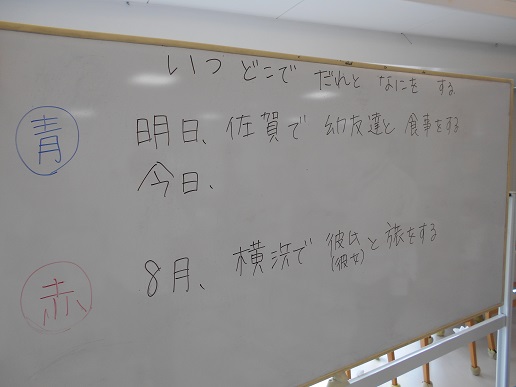 いつ どこで だれと なにを する
青 明日、佐賀で 幼友達と 食事をする
今日、
赤 8月、横浜で 彼氏(彼女)と 旅をする